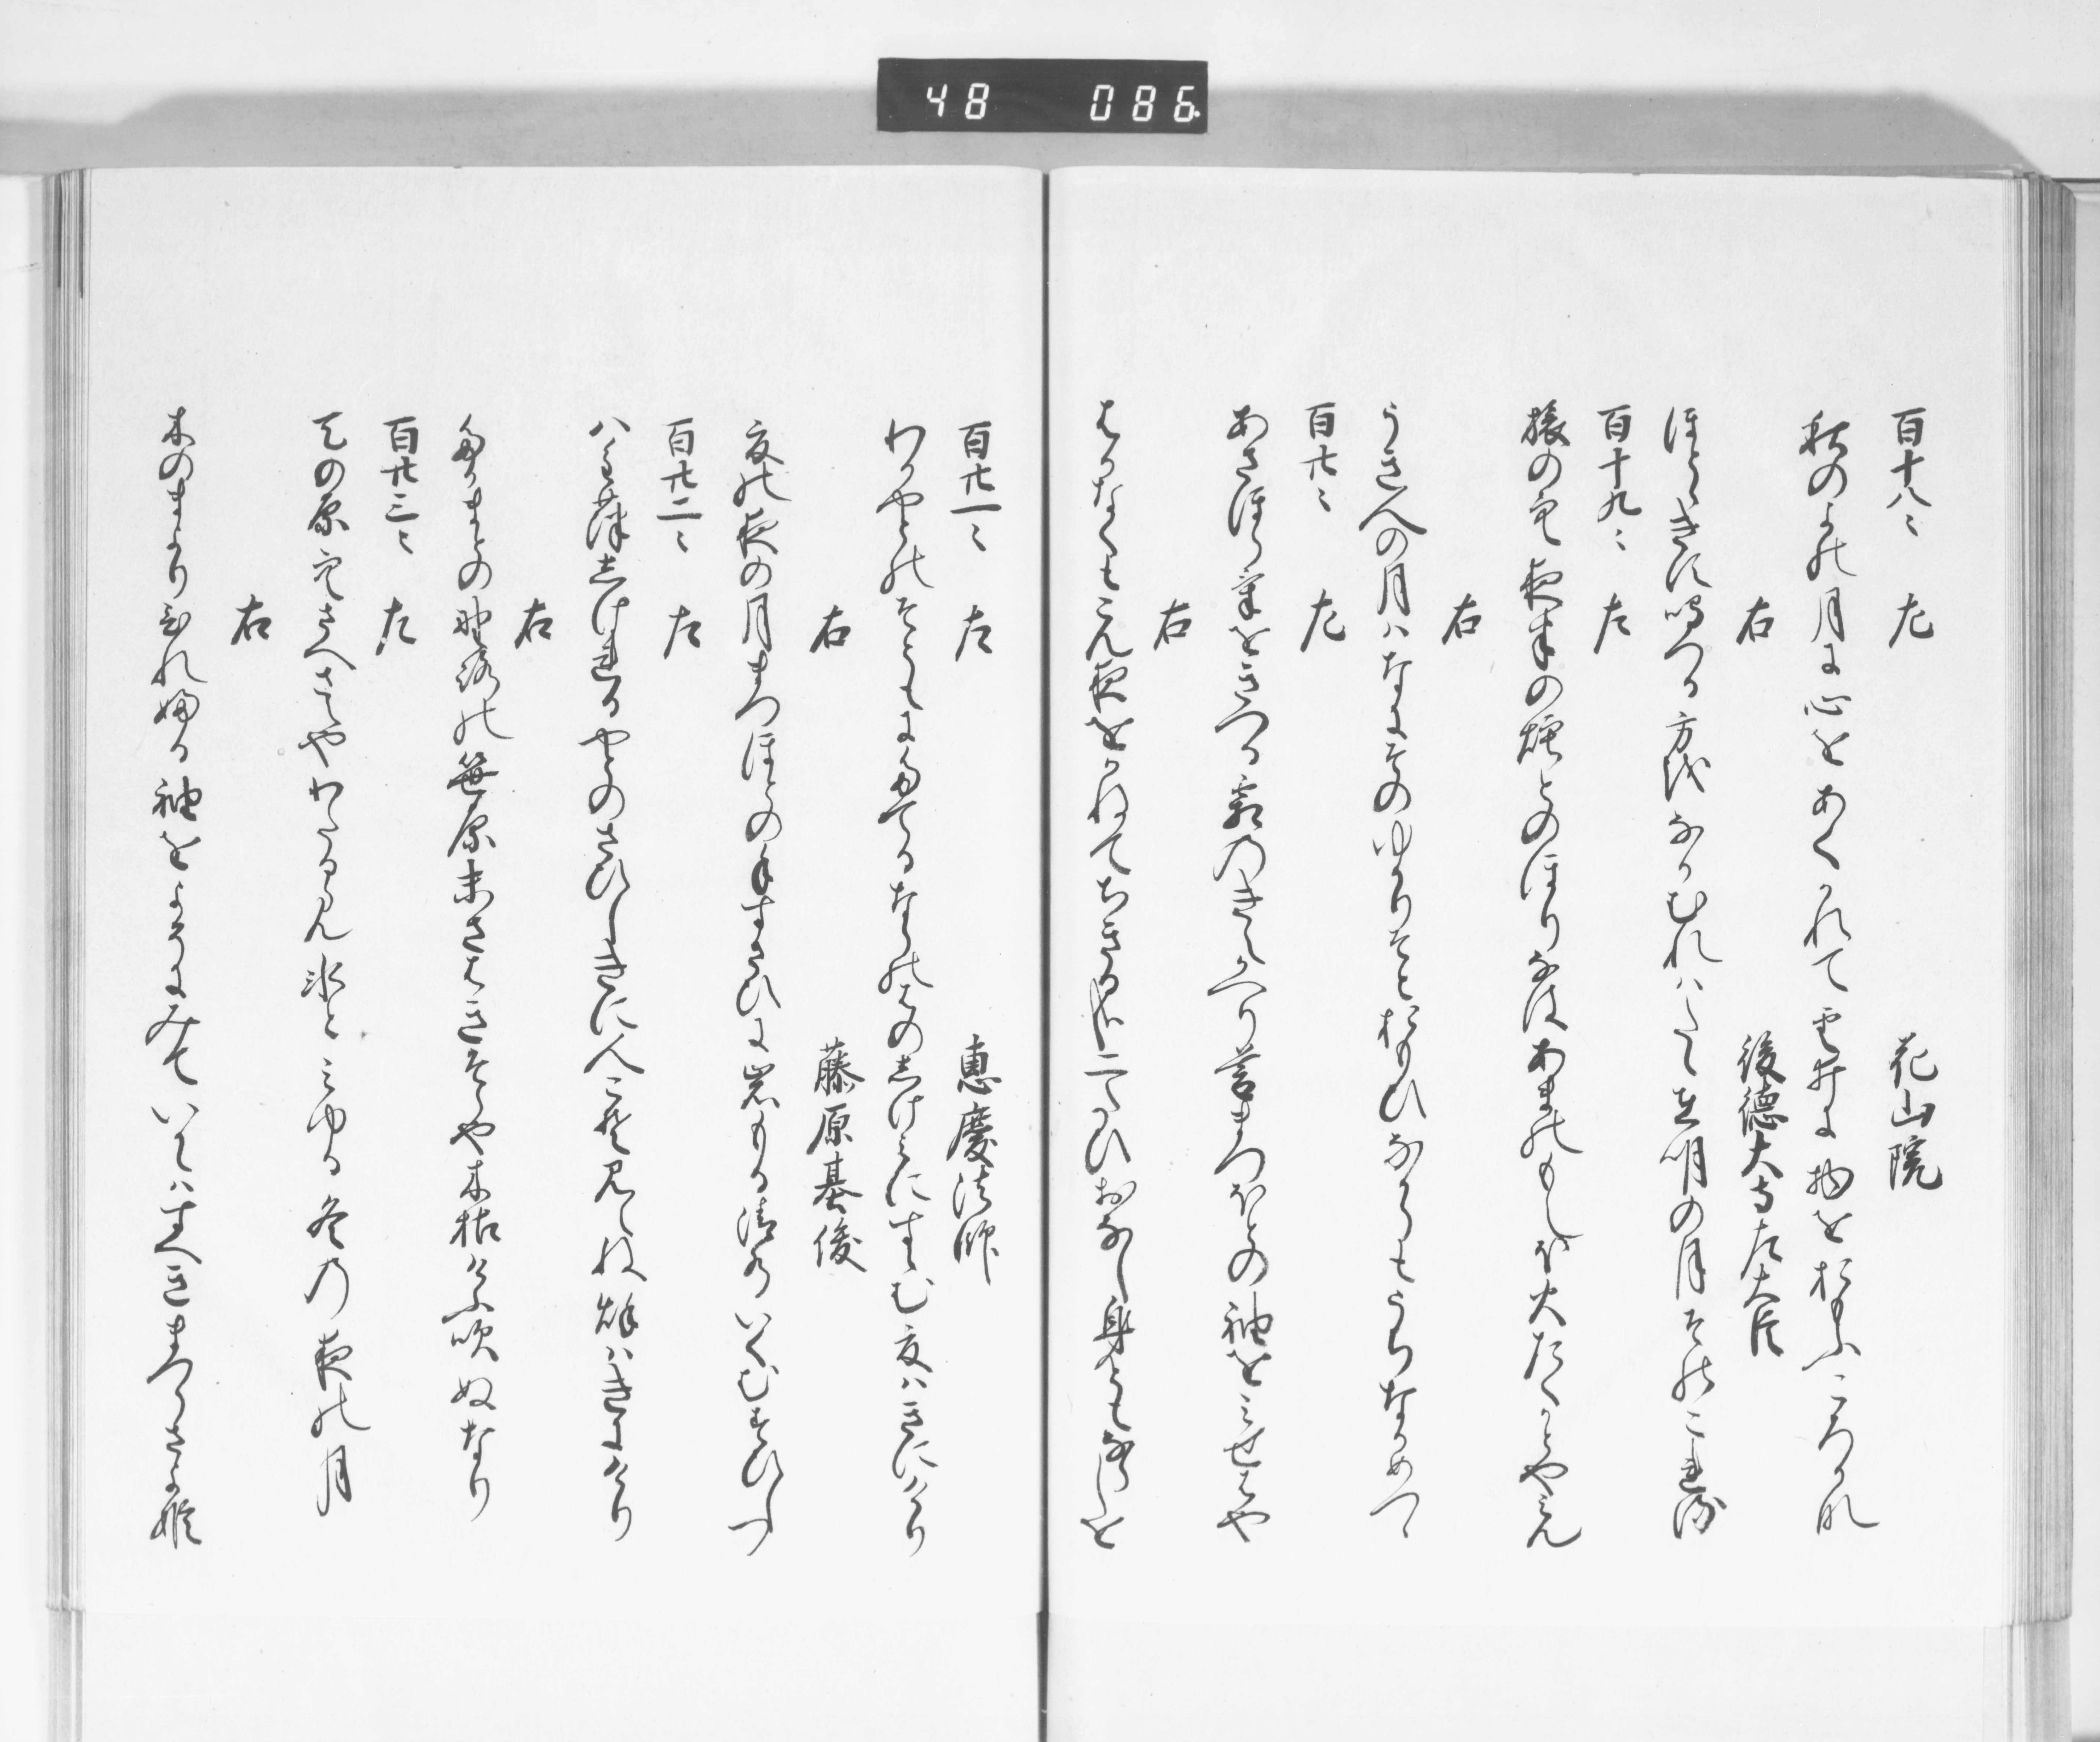 48 086
百十八〻 左 花山院
秋のよの月に心をあくかれて雲井に物をおもふころかな
右 後徳大寺左大臣
ほとゝきす鳴つる方をなかむれはたゝ有明の月そのこれる
百十九〻 左
旅の空夜半の煙とのほりなはあまのもしほ火たくかとやみん
右
うき人の月はなにそのゆかりそとおもひなからもうちなかめつゝ
百廿〻 左
あさほらけをきつる霜のきえかへり暮まつほとの袖をみせはや
右
はかなくもこん夜をかねてちきるかな二たひおなし身ともならしを
百廿一〻 左 恵慶法師
わかやとのそともにたてるならの葉のしけみにすゝむ夏はきにけり
右 藤原基俊
夏の夜の月まつほとの手すさひに岩もる清水いくむすひしつ
百廿二〻 左
八重葎しけれるやとのさひしきに人こそ見えね秋はきにけり
右
たかまとの野路の篠原末さはきそゝや木枯けふ吹ぬなり
百廿三〻 左
天の原空さへさえやわたるらん氷とみゆる冬の夜の月
右
木のまよりひれふる袖をよそにみていかゝはすへきまつらさよ姫